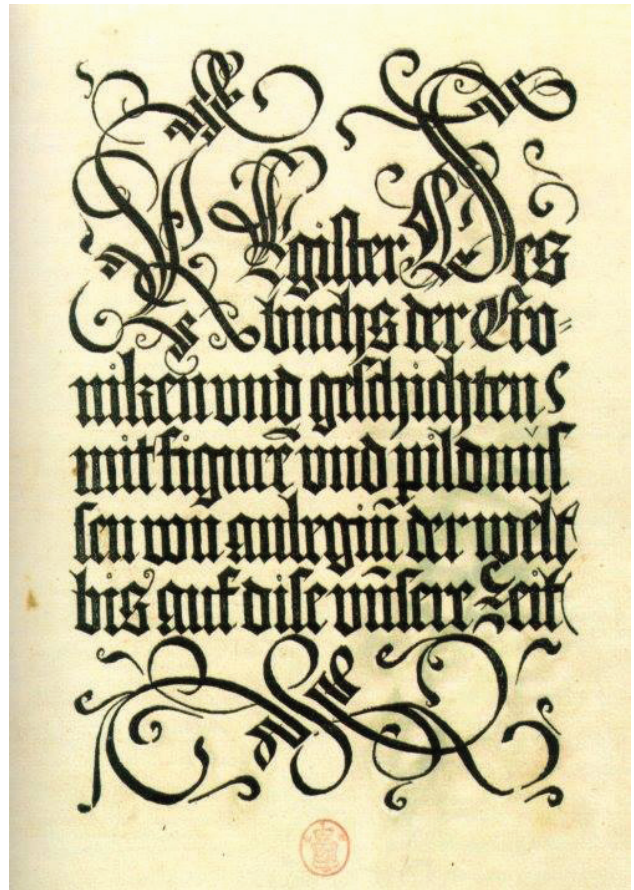 REgiſter Des
buchs der Cro=
niken vnd geſchichten
mit figurē vnd pildnuſ
ſen von anbegiñ der welt
bis auf diſe vnſere Zeit